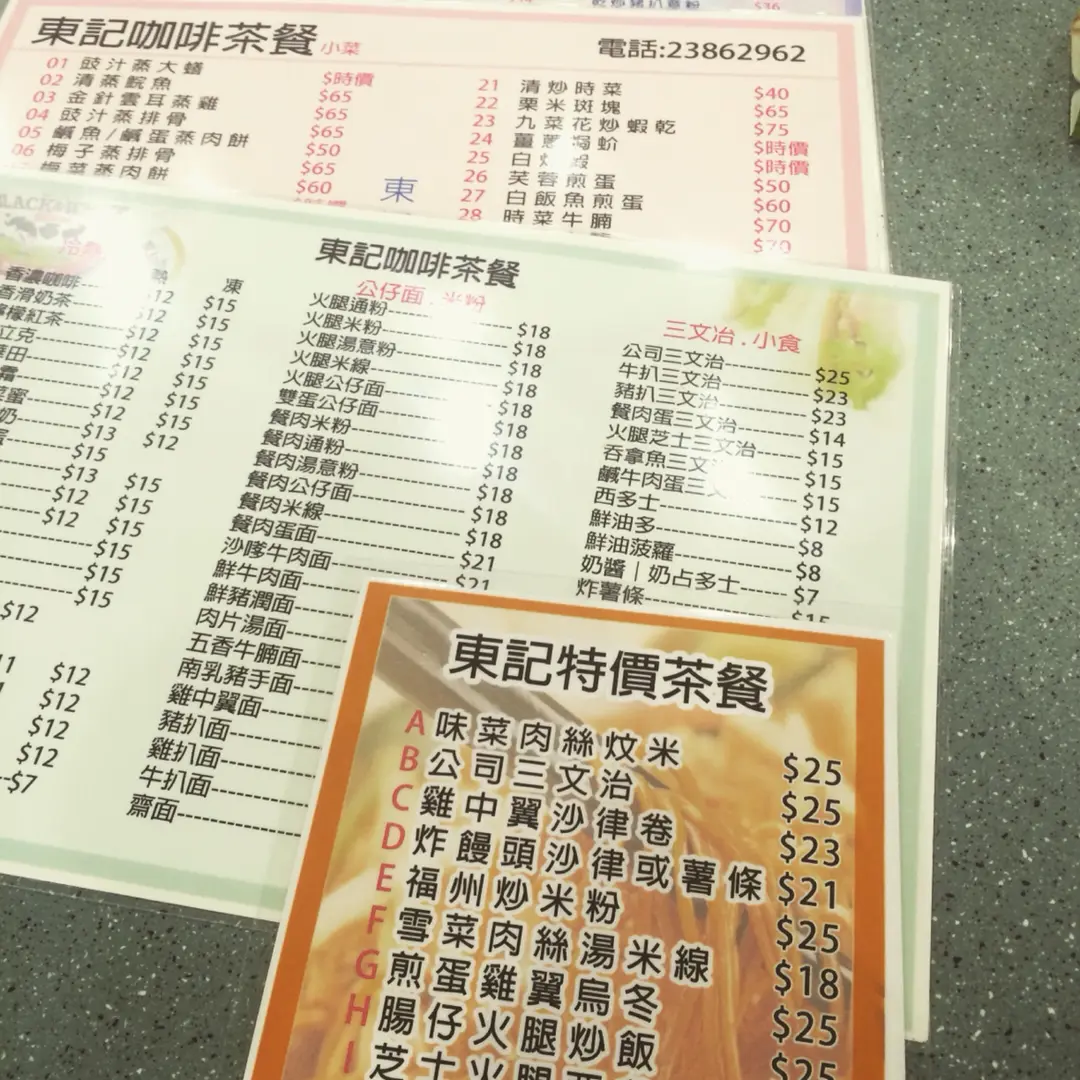 東記咖啡茶餐 小菜
電話:23862962
$36
01 豉汁蒸大鱔 $時價
02 清蒸鯇魚 $65
03 金針雲耳蒸雞 $65
04 豉汁蒸排骨 $65
05 鹹魚/鹹蛋蒸肉餅 $50
06 梅子蒸排骨 $65
梅菜蒸肉餅 $60
東
21 清炒時菜 $40
22 粟米斑塊 $65
23 九菜花炒蝦乾 $75
24 薑蔥焗蚧 $時價
25 白灼蝦 $時價
26 芙蓉煎蛋 $50
27 白飯魚煎蛋 $60
28 時菜牛腩 $70
$70
東記咖啡茶餐
熱 凍
香濃咖啡 $12 $15
香滑奶茶 $12 $15
檸檬紅茶 $12 $15
立克 $12 $15
田 $12 $15
霜 $12 $15
蜜 $12 $15
奶 $13 $12
蛋 $15
$13 $15
$12 $15
$12 $15
$15
$15
$15
$12
$12
$12
$12
$12
$7
公仔面．米粉
火腿通粉 $18
火腿米粉 $18
火腿湯意粉 $18
火腿米線 $18
火腿公仔面 $18
雙蛋公仔面 $18
餐肉米粉 $18
餐肉通粉 $18
餐肉湯意粉 $18
餐肉公仔面 $18
餐肉米線 $18
餐肉蛋面 $21
沙嗲牛肉面 $21
鮮牛肉面
鮮豬潤面
肉片湯面
五香牛腩面
南乳豬手面
雞中翼面
豬扒面
雞扒面
牛扒面
齋面
三文治．小食
公司三文治 $25
牛扒三文治 $23
豬扒三文治 $23
餐肉蛋三文治 $14
火腿芝士三文治 $15
吞拿魚三文 $15
鹹牛肉蛋三文 $15
西多士 $12
鮮油多 $8
鮮油菠蘿 $8
奶醬｜奶占多士 $7
炸薯條 $15
東記特價茶餐
A 味菜肉絲炆米 $25
B 公司三文治 $25
C 雞中翼沙律卷 $23
D 炸饅頭沙律或薯條 $21
E 福州炒米粉 $25
F 雪菜肉絲湯米線 $18
G 煎蛋雞翼烏冬 $25
H 腸仔火腿炒飯 $25
I 芝士火腿